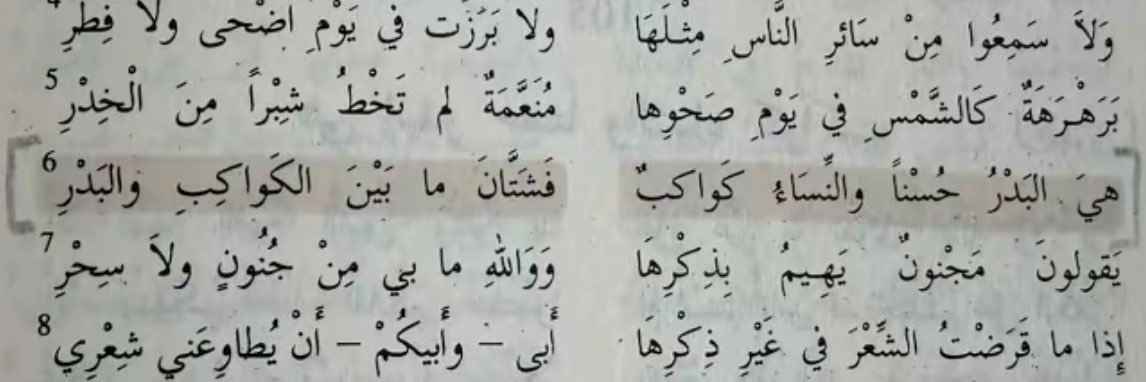 وَلاَ سَمِعُوا مِنْ سَائرِ النَّاسِ مِثْلَهَا ولا بَرَزَت في يَوْمِ اضْحى ولا فِطْرِ
بَرَهْرَهَةٌ كَالشَّمْسِ في يَوْمِ صَحْوِها مُنَعَّمَةٌ لم تَخْطُ شِبْراً مِنَ الْخِدْرِ 5
هيَ البَدْرُ حُسْناً والنِّسَاءُ كَواكبٌ فَشَتَّانَ ما بَيْنَ الكَواكِبِ والبَدْرِ 6
يَقولونَ مَجْنونٌ يَهِيمُ بِذِكْرِهَا وَوَاللهِ ما بي مِنْ جُنُونٍ ولاَ سِحْرِ 7
إِذا ما قَرَضْتُ الشَّعْرَ في غَيْرِ ذِكْرِهَا أَبى – وأَبيكُمْ – أَنْ يُطاوِعَني شِعْرِي 8